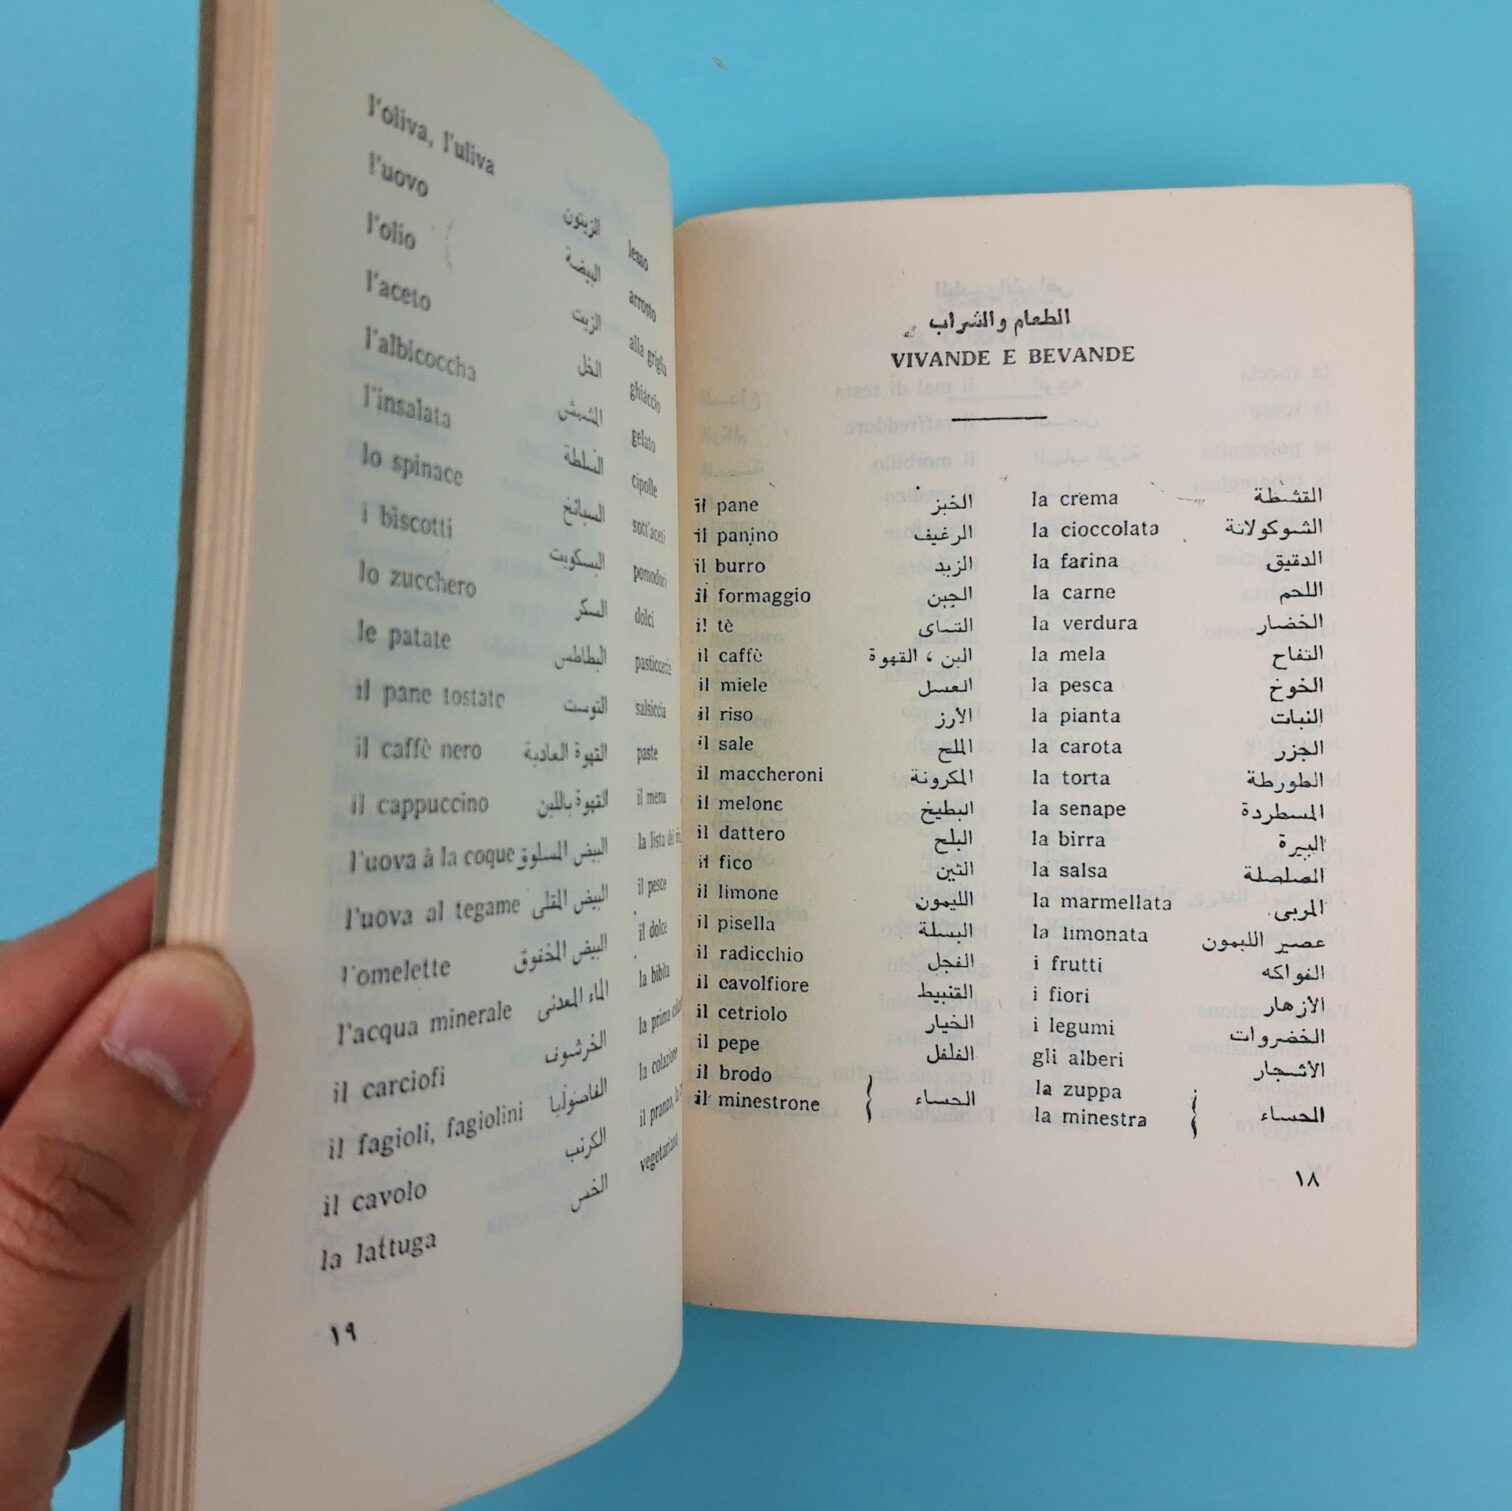 الطعام والشراب
VIVANDE E BEVANDE
il pane الخبز la crema القشطة
il panino الرغيف la cioccolata الشوكولاتة
il burro الزبد la farina الدقيق
il formaggio الجبن la carne اللحم
il tè الشاى la verdura الخضار
il caffè البن ، القهوة la mela التفاح
il miele العسل la pesca الخوخ
il riso الأرز la pianta النبات
il sale الملح la carota الجزر
il maccheroni المكرونة la torta الطورطة
il melone البطيخ la senape المسطردة
il dattero البلح la birra البيرة
il fico التين la salsa الصلصلة
il limone الليمون la marmellata المربى
il pisella البسلة la limonata عصير الليمون
il radicchio الفجل i frutti الفواكه
il cavolfiore القنبيط i fiori الازهار
il cetriolo الخيار i legumi الخضروات
il pepe الفلفل gli alberi الأشجار
il brodo la zuppa
il minestrone الحساء la minestra الحساء
١٨
l'oliva, l'uliva الزيتون lesso
l'uovo البيضة arrosto
l'olio الزيت alla griglia
l'aceto الخل ghiaccio
l'albicoccha المشمش gelato
l'insalata السلطة cipolle
lo spinace السبانخ sott'aceti
i biscotti البسكويت pomodori
lo zucchero السكر dolci
le patate البطاطس pasticceria
il pane tostato التوست salsiccia
il caffè nero القهوة العادية paste
il cappuccino القهوة باللبن il menu
l'uova à la coque البيض المسلوق la lista dei
l'uova al tegame البيض المقلى il pesce
l'omelette البيض المخفوق il dolce
l'acqua minerale الماء المعدنى la bibita
il carciofi الخرشوف la prima
il fagioli, fagiolini الفاصوليا la colazione
il cavolo الكرنب il pranzo,
la lattuga الخس vegetariano
١٩